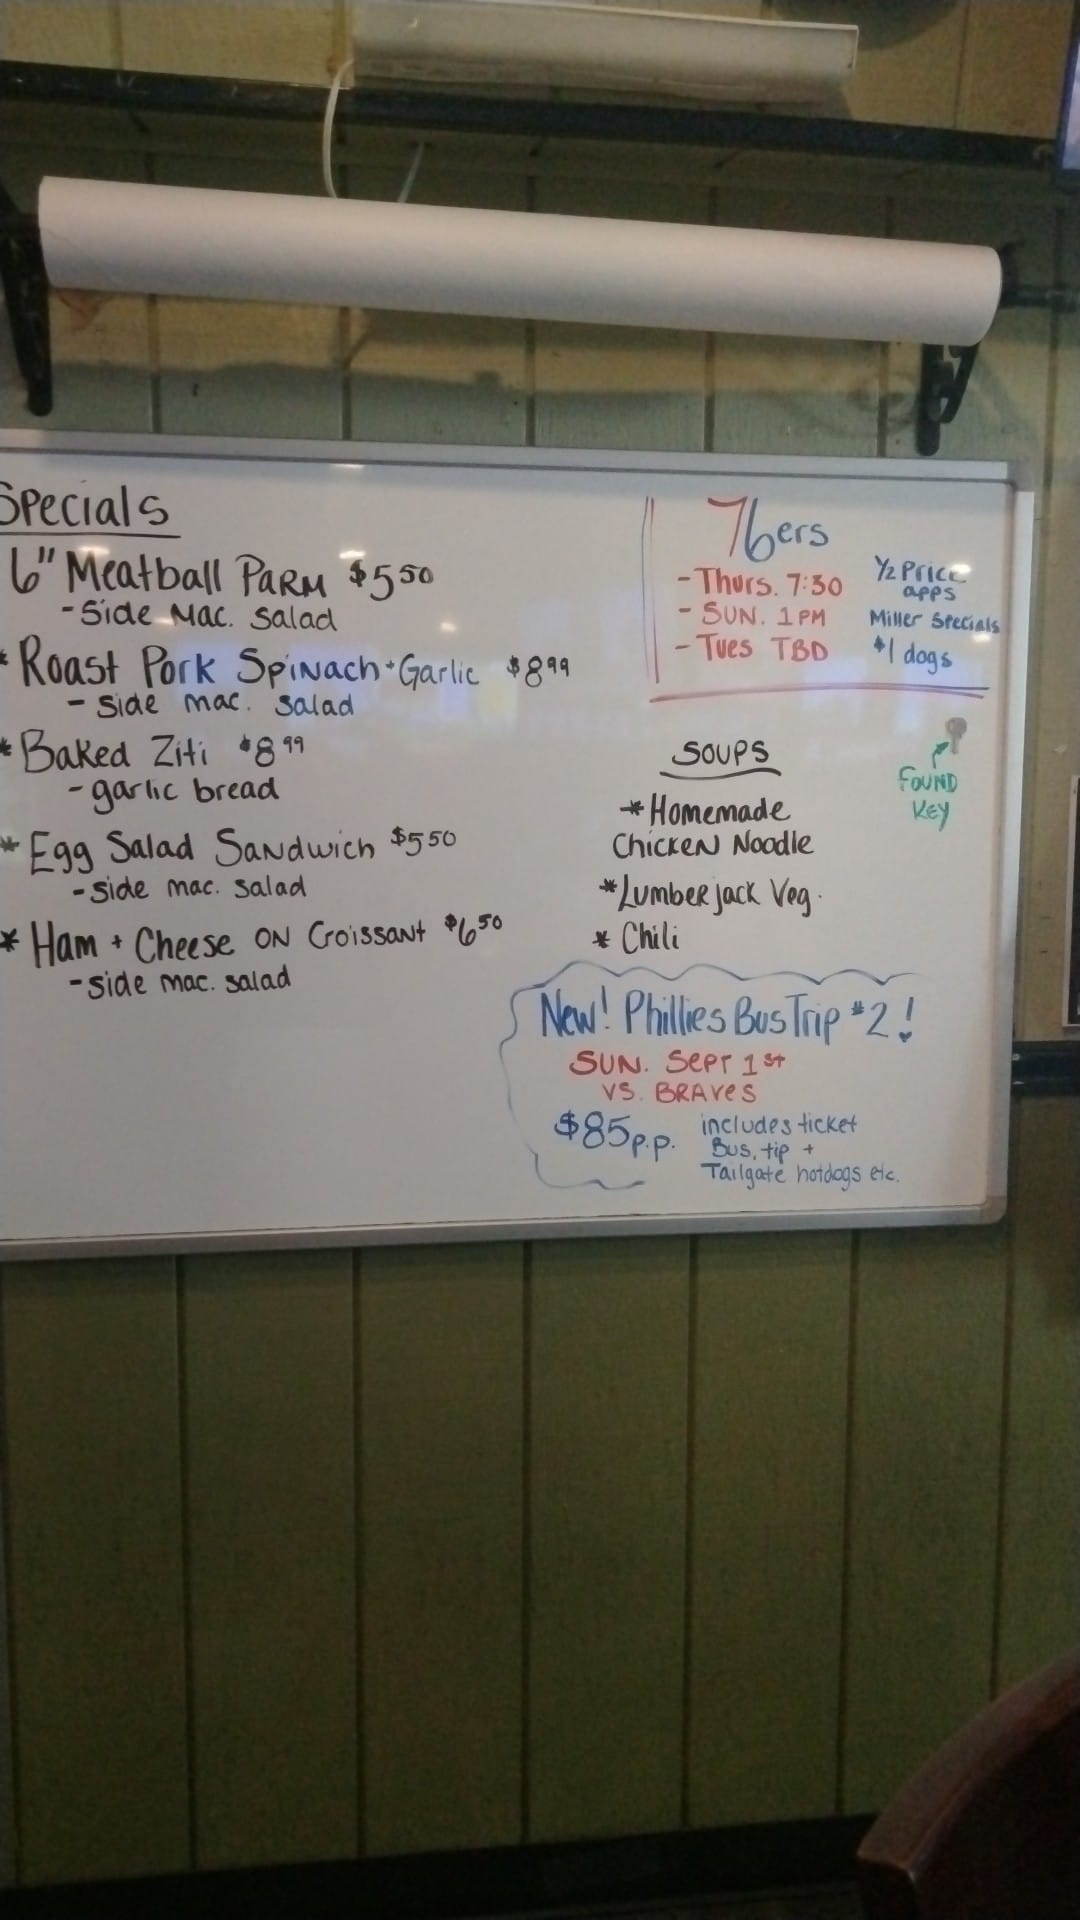 Specials
6" Meatball Parm $5.50
- Side Mac. Salad
* Roast Pork Spinach + Garlic $8.99
- side mac. salad
* Baked Ziti $8.99
- garlic bread
* Egg Salad Sandwich $5.50
- side mac. salad
* Ham + Cheese on Croissant $6.50
- side mac. salad
76ers
- Thurs. 7:30
- Sun. 1 PM
- Tues TBD
1/2 Price
apps
Miller Specials
$1 dogs
Found
Key
Soups
* Homemade
Chicken Noodle
* Lumberjack Veg.
* Chili
New! Phillies Bus Trip #2!
Sun. Sept 1st
vs. Braves
$85 p.p.
includes ticket
Bus, tip +
Tailgate hotdogs etc.